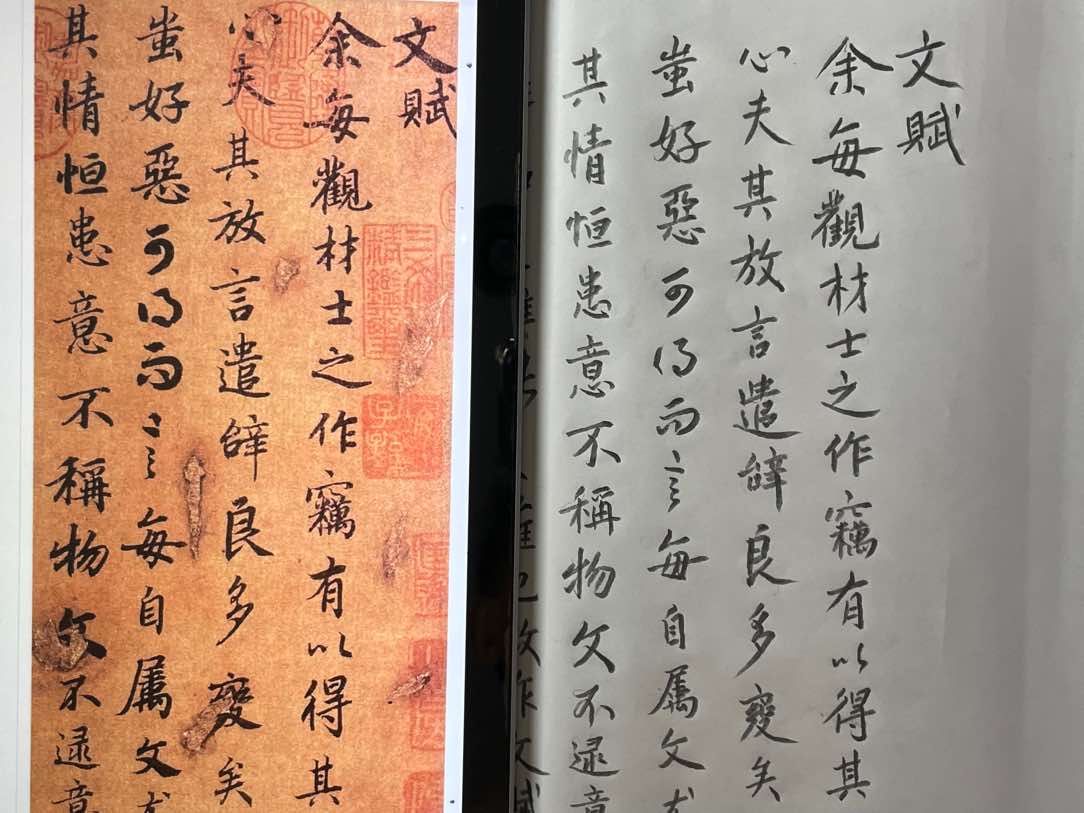 文賦
余每觀材士之作竊有以得其
心夫其放言遣辭良多變矣
蚩好惡可得而言每自属文尤
其情恒患意不稱物文不逮意
文賦
余每觀材士之作竊有以得其
心夫其放言遣辭良多變矣
蚩好惡可得而言每自属文尤
其情恒患意不稱物文不逮意
也故作文賦